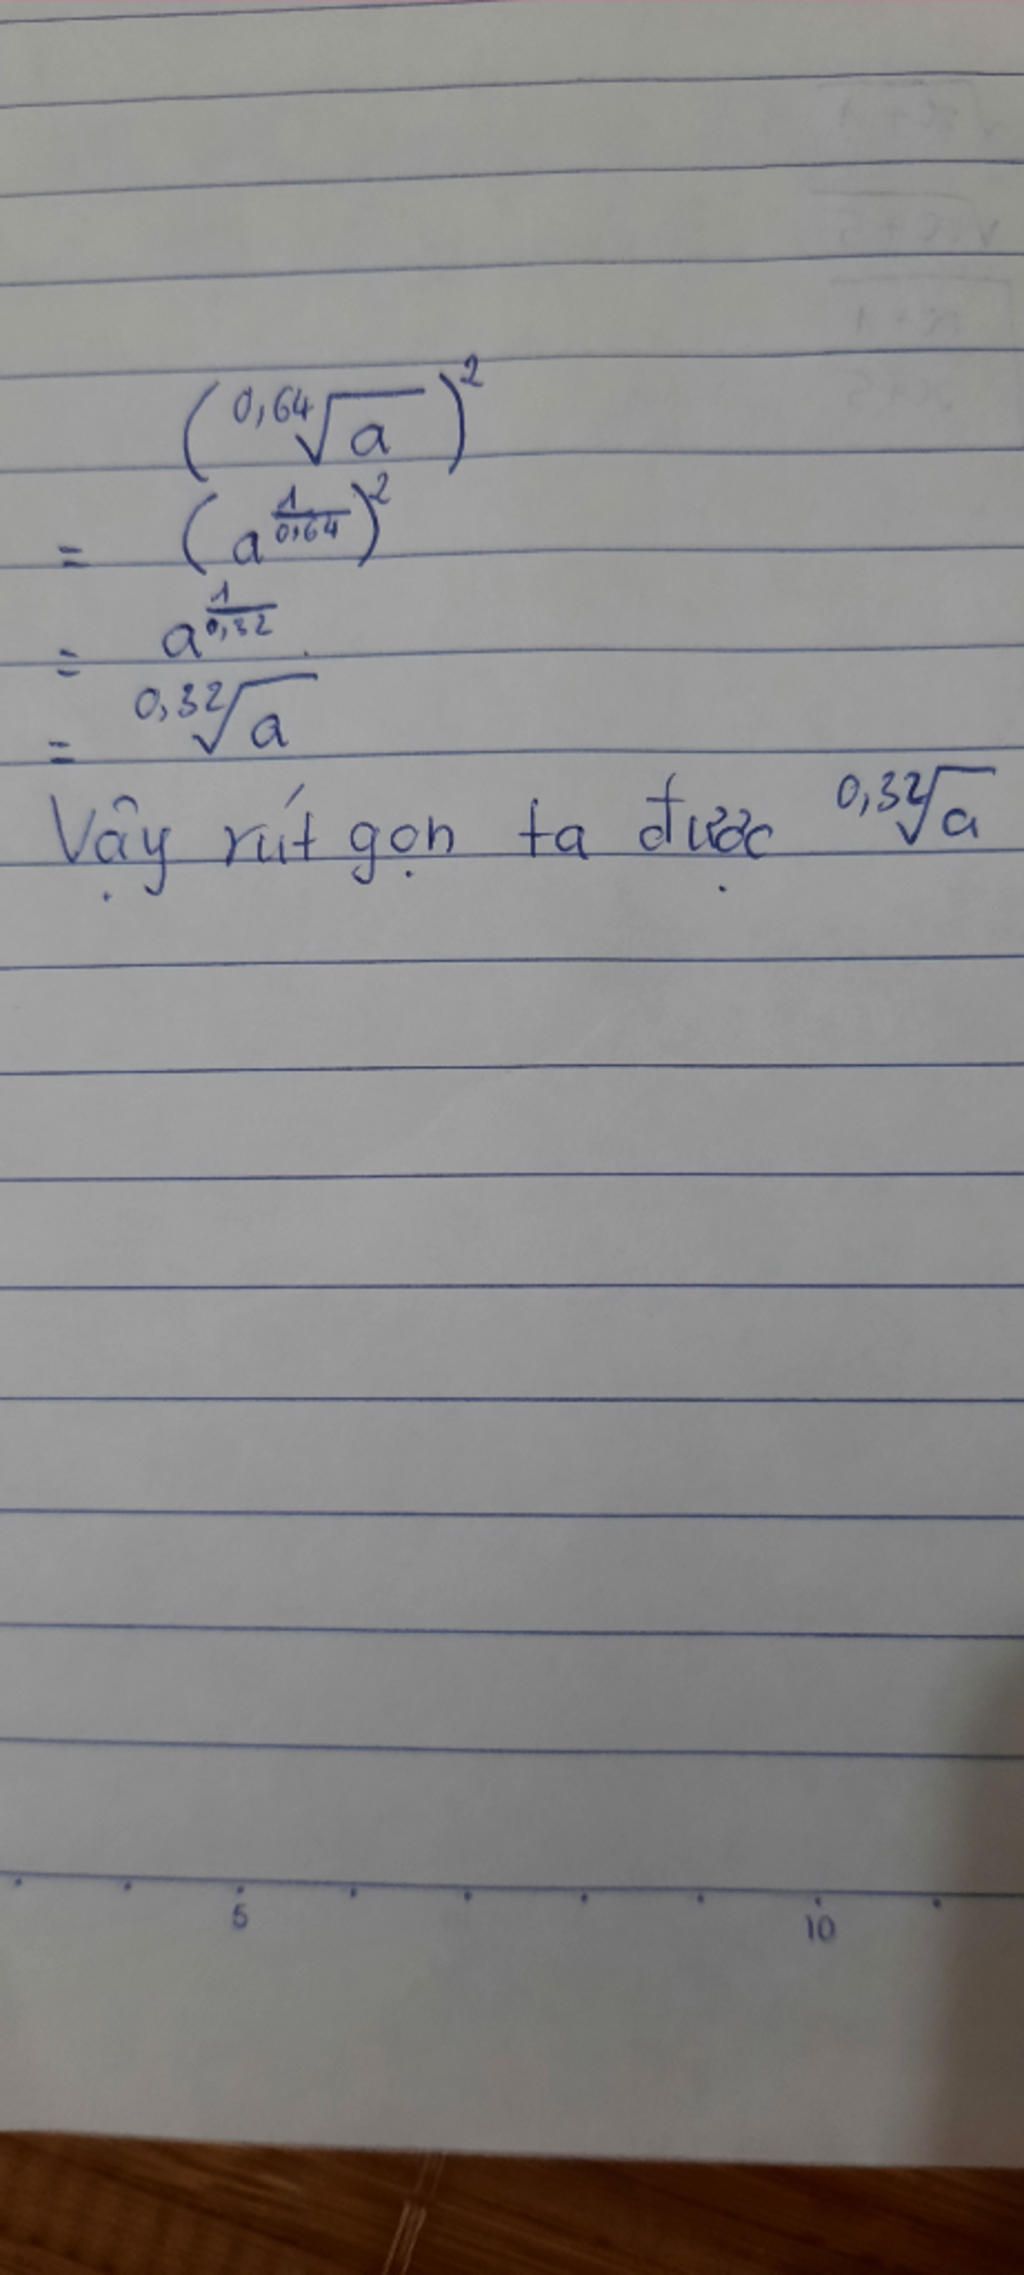 (⁰'⁶⁴√a)²
= (a^(1/0,64))²
= a^(1/0,32)
= ⁰'³²√a
Vậy rút gọn ta được ⁰'³²√a
5 10